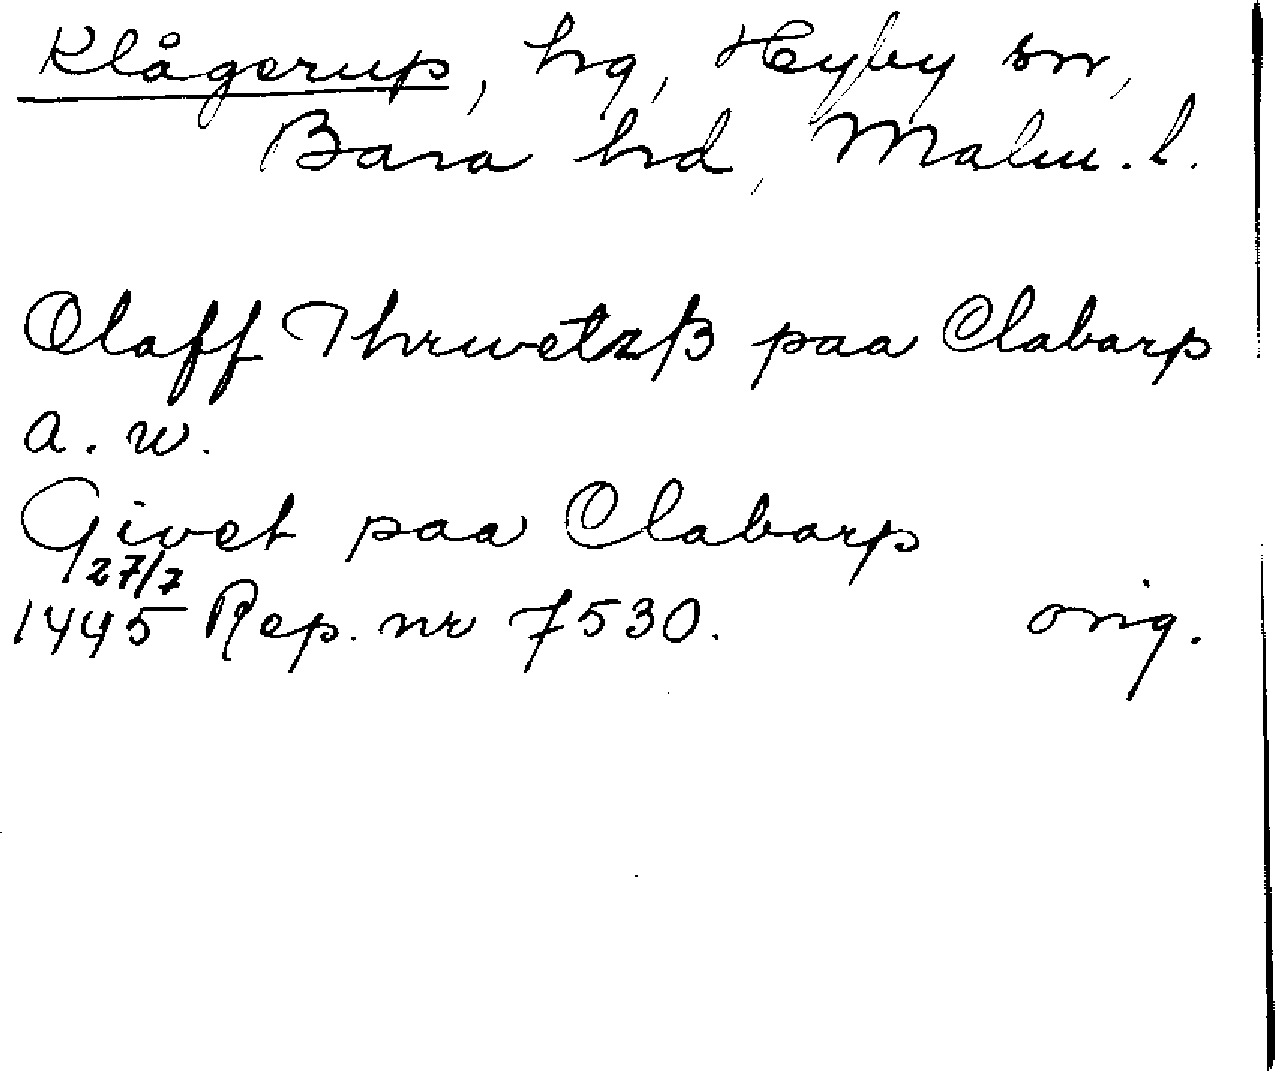 Klågerup, hg, Hyby sn,
Bara hd, Malm. l.
Olaff Thrwetzß paa Clabarp
a. w.
Givet paa Clabarp
27/7
1445 Rep. nr 7530. orig.